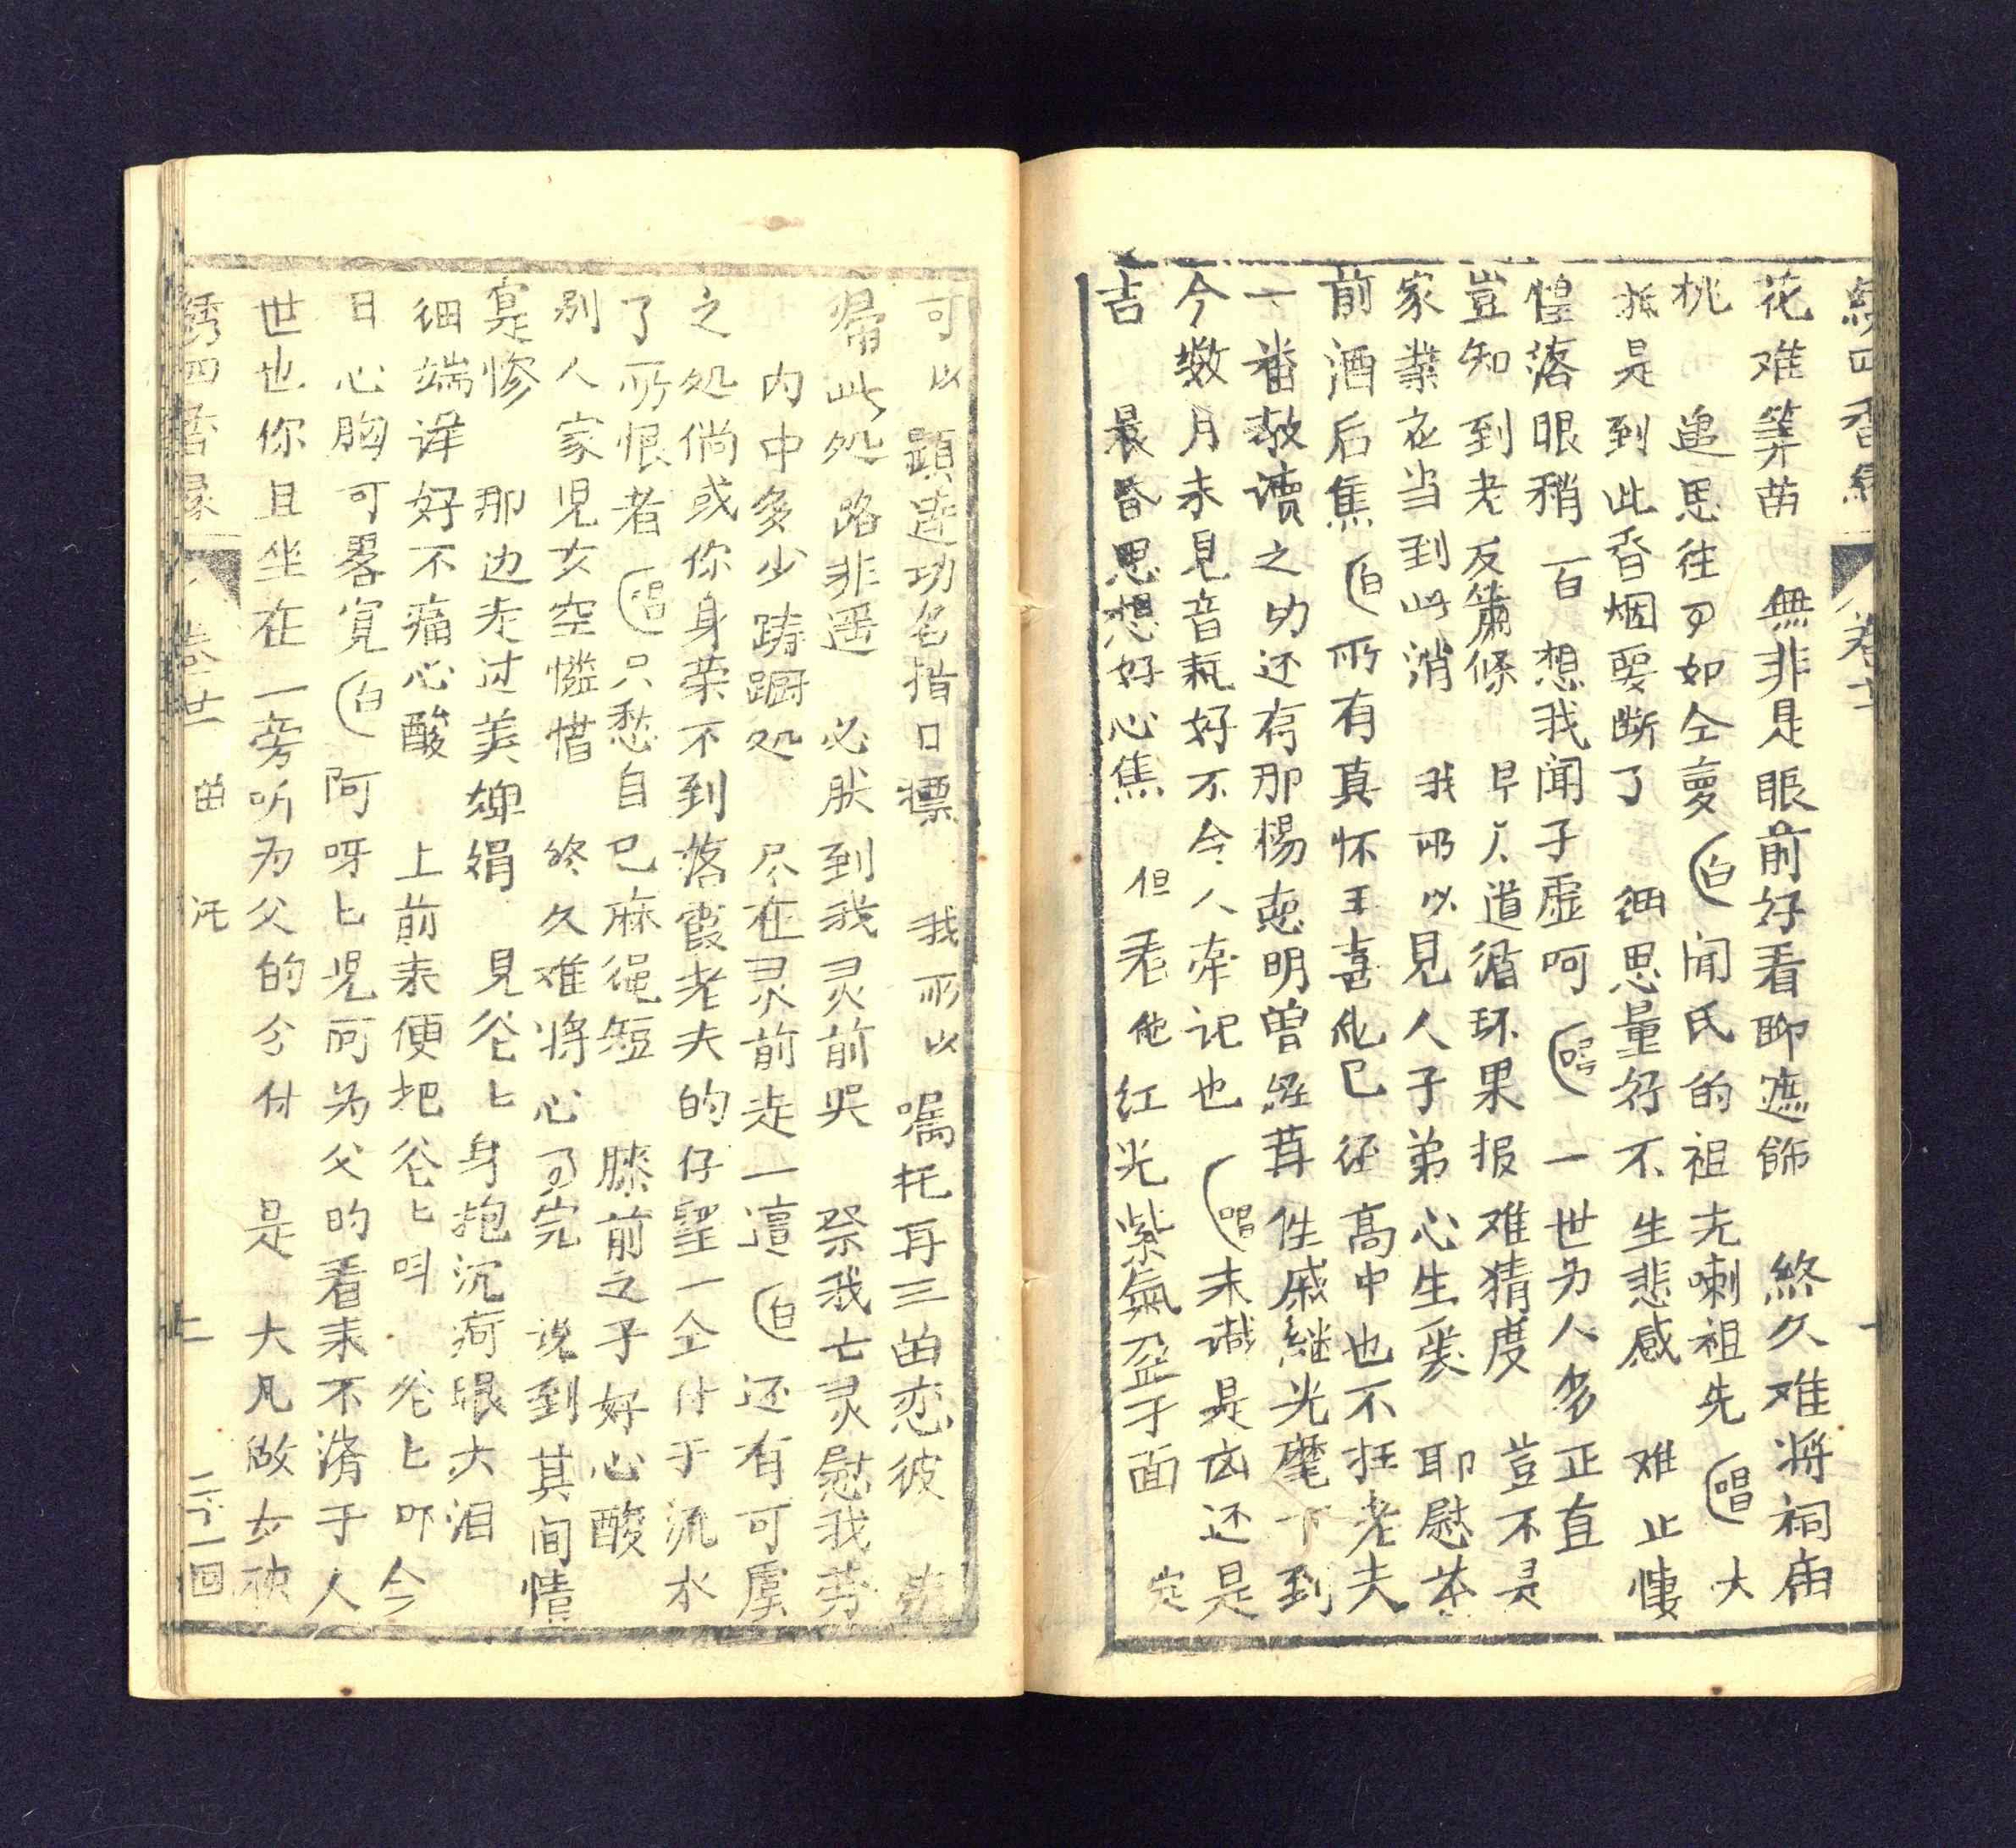 四香
卷十
花难算苗 無非是眼前好看聊遮飾 終久难将祠庙
桃 追思往事如仝夢(白)闻氏的祖先喇祖先(唱)大
抵是到此香烟要断了 细思量好不生悲感 难止悽
惶落眼稍 百 想我闻子虚呵(唱)一世为人多正直
豈知到老反蕭條 早人道循环果报难猜度 豈不是
家業在当到此消 我所以見人子弟心生爱 耶慰茶
前酒后焦(白)所有真怀王喜他已经高中也不枉老夫
一番教读之功还有那楊 明曾 姓戚继光麾下到
今数月未見音訊好不令人牵记也(唱)未識是凶还是
吉 晨昏思想好心焦 但看他红光紫氣盈于面 定
可以顕達功名指日標 我所以嘱托再三由恋彼
帰此処路非遥 必然到我灵前哭 祭我亡灵慰我劳
内中多少踌躕処 尽在灵前走一這(白)还有可虞
之処倘或你身荣不到落霞老夫的仔望一仝付于流水
了所恨者(唱)只愁自己麻绳短 膝前之子好心酸
别人家児女空憐惜 終久难将心事完 说到其间情
寔惨 那边走过美婵娟 見爸匕身抱沉疴眼大泪
细端详好不痛心酸 上前来便把爸匕叫 爸匕吓今
日心胸可畧寬(白)阿呀匕児呵为父的看来不濟于人
世也你且坐在一旁听为父的分付 是 大凡做女
四香 卷廿 曲 托 上 二十一回